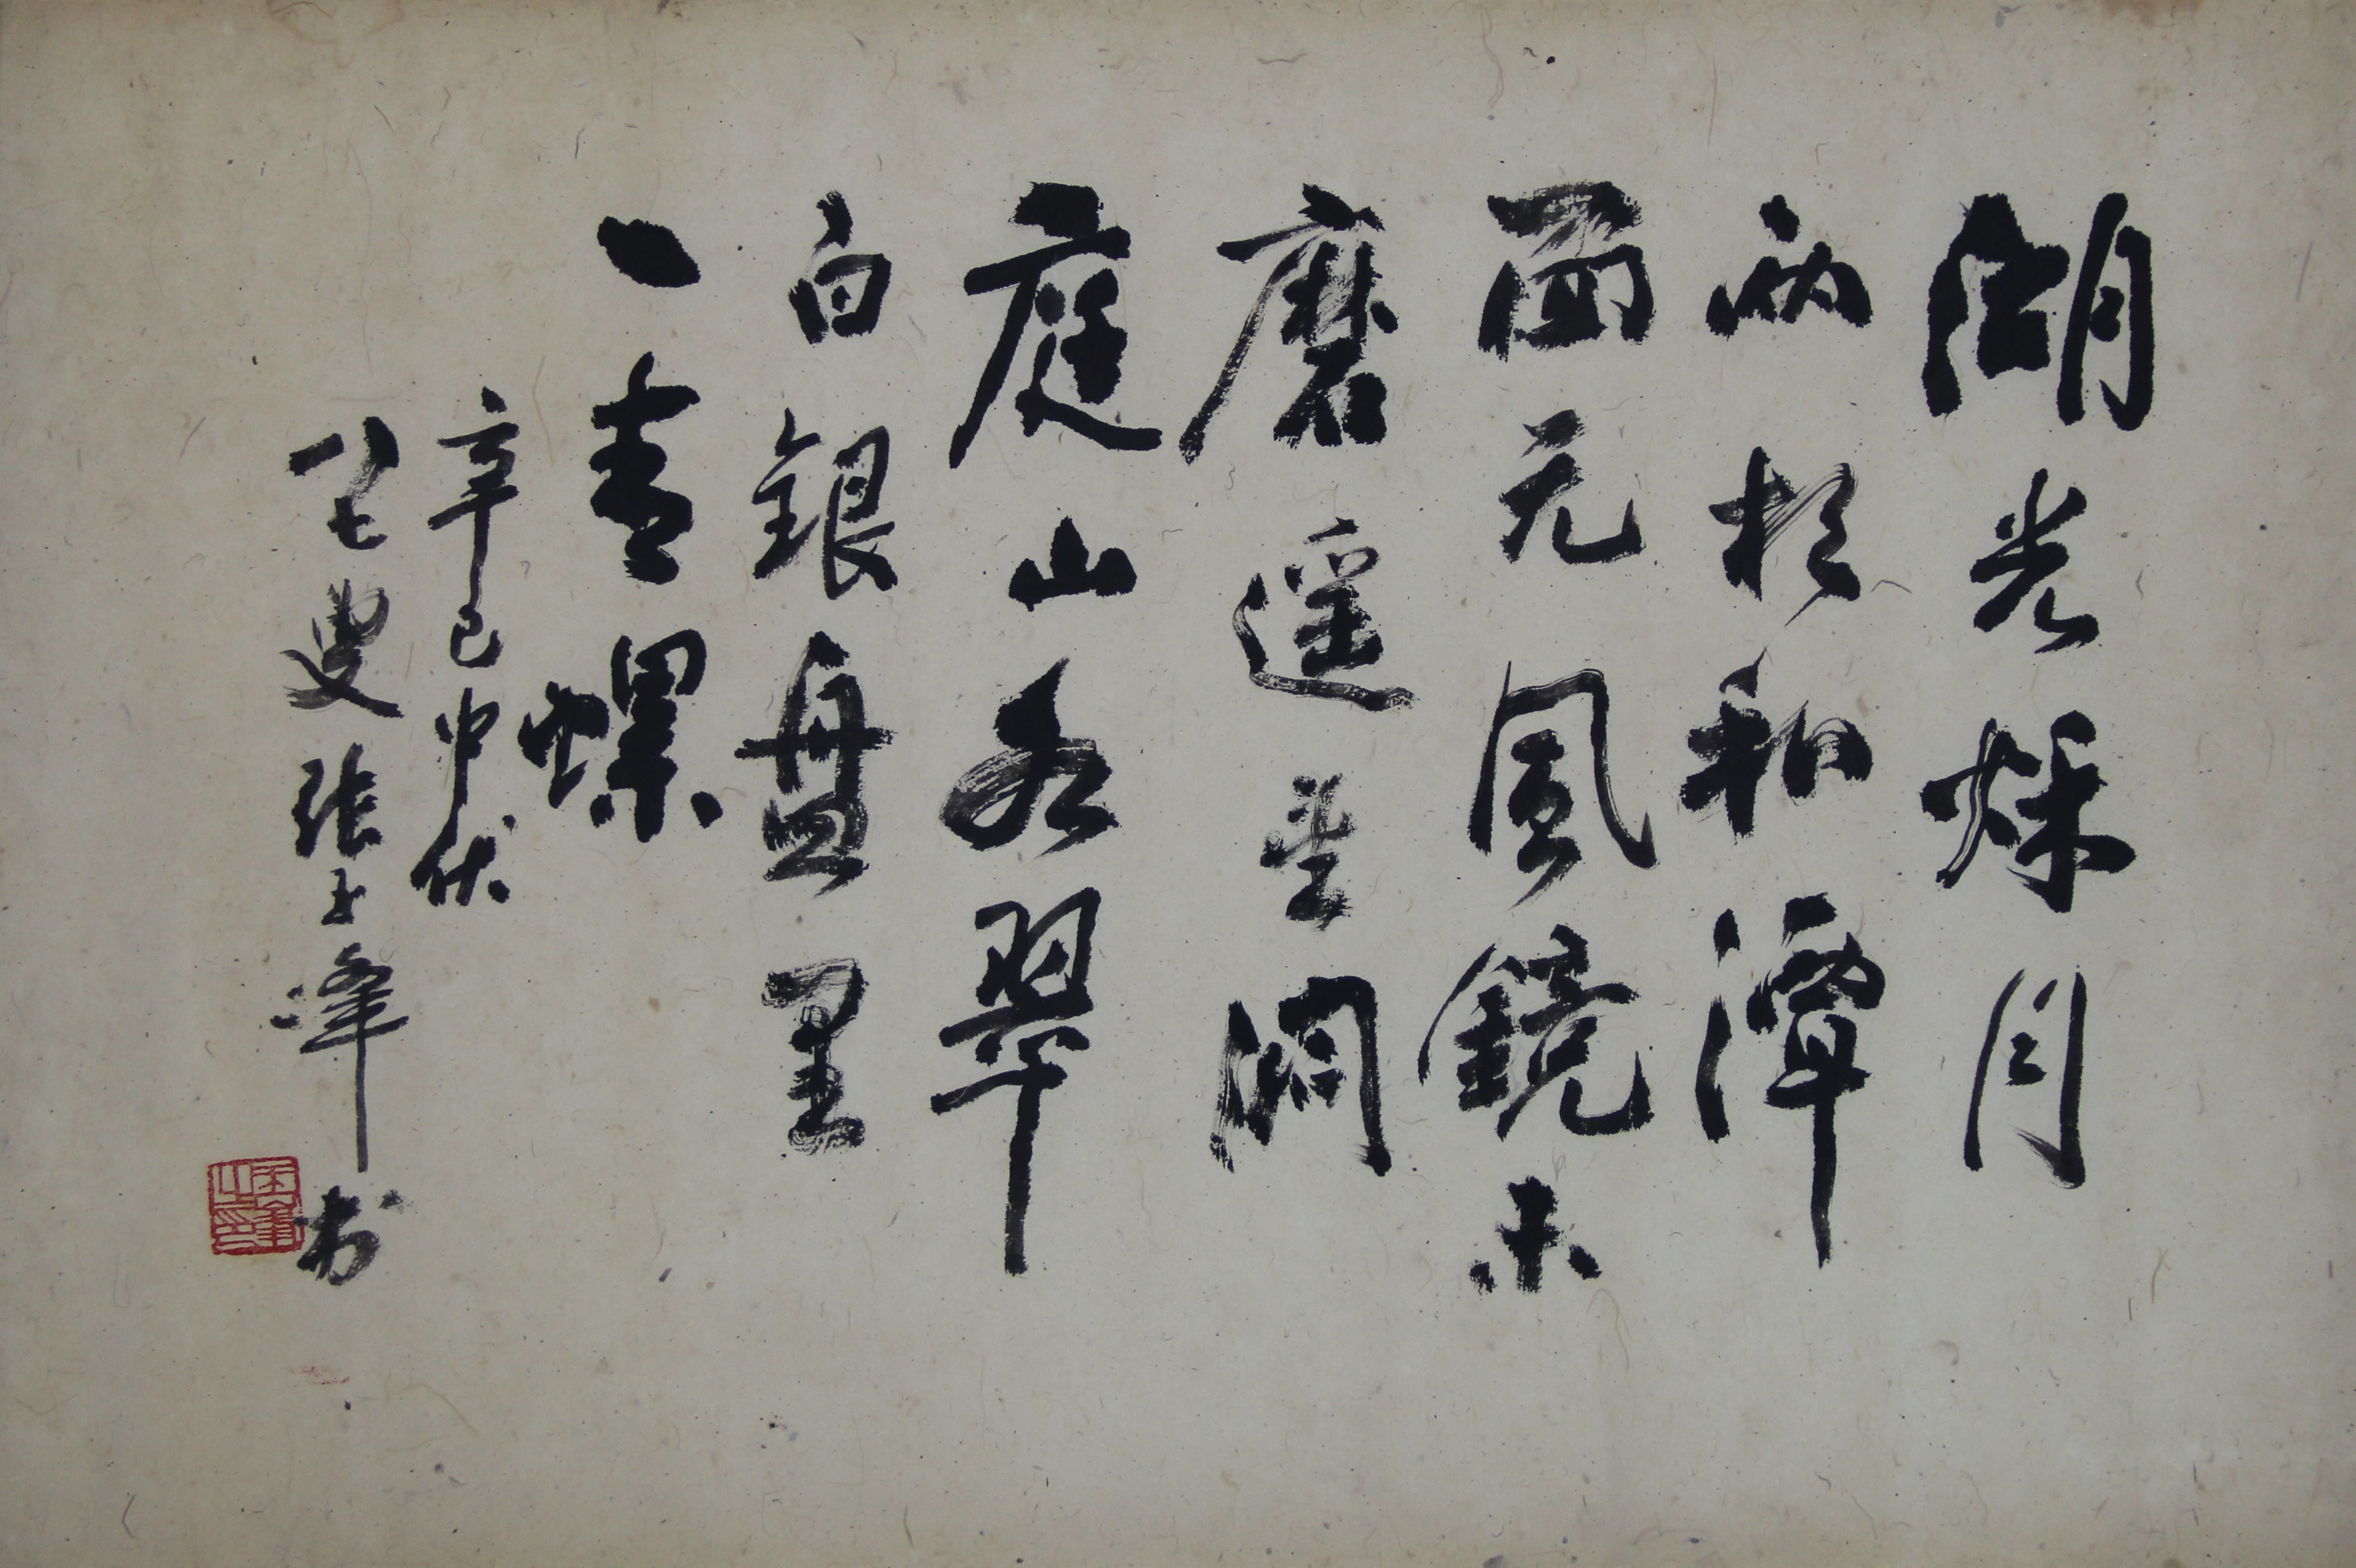 湖光秋月
兩相和潭
面无風鏡未
磨遥望洞
庭山水翠
白銀盘里
一青螺
辛巳中伏
八十七叟張玉峰书